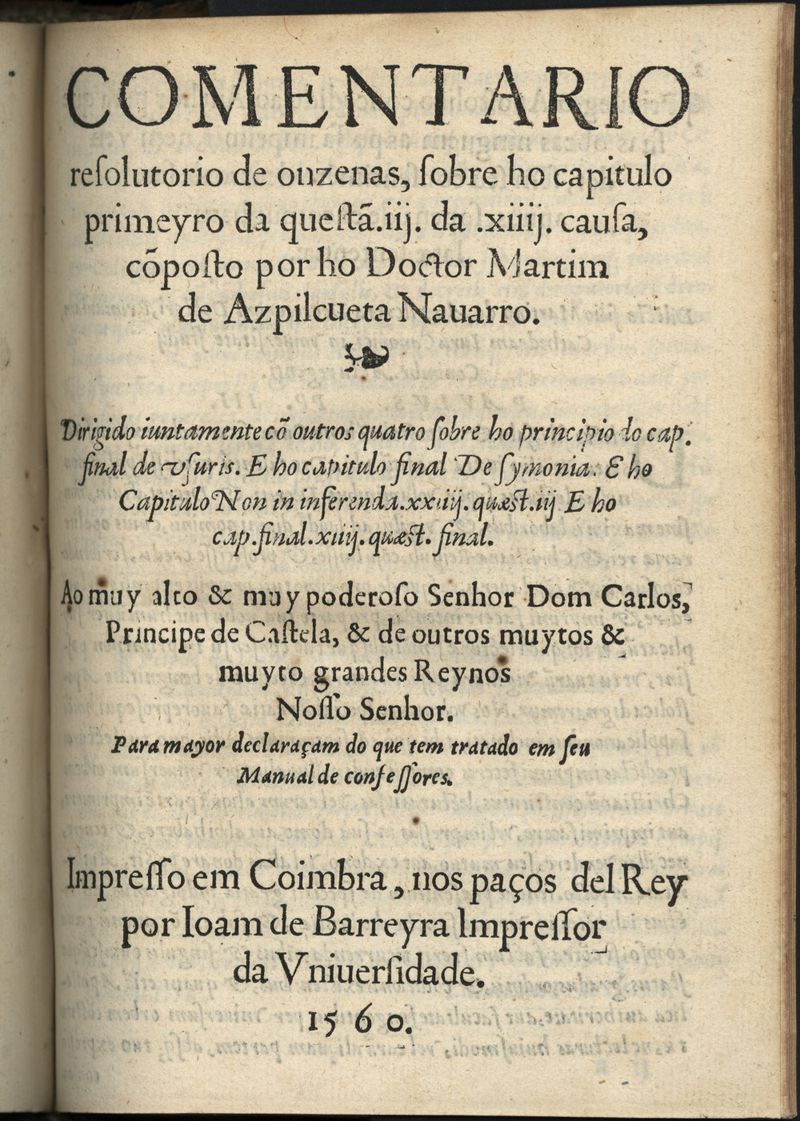 COMENTARIO
reſolutorio de onzenas, ſobre ho capitulo
primeyro da queſtã.iij. da .xiiij. cauſa,
cõpoſto por ho Doctor Martim
de Azpilcueta Nauarro.
Dirigido iuntamente cõ outros quatro ſobre ho principio do cap.
final de vſuris. E ho capitulo final De ſymonia. E ho
Capitulo Non in inferenda.xxiiij. quæst.iij E ho
cap.final.xiiij.quæst. final.
Ao muy alto & muy poderoſo Senhor Dom Carlos,
Principe de Caſtela, & de outros muytos &
muyto grandes Reynos
Noſſo Senhor.
Para mayor declaraçam do que tem tratado em ſeu
Manual de confeſſores.
Impreſſo em Coimbra, nos paços del Rey
por Ioam de Barreyra Impreſſor
da Vniuerſidade.
1560.